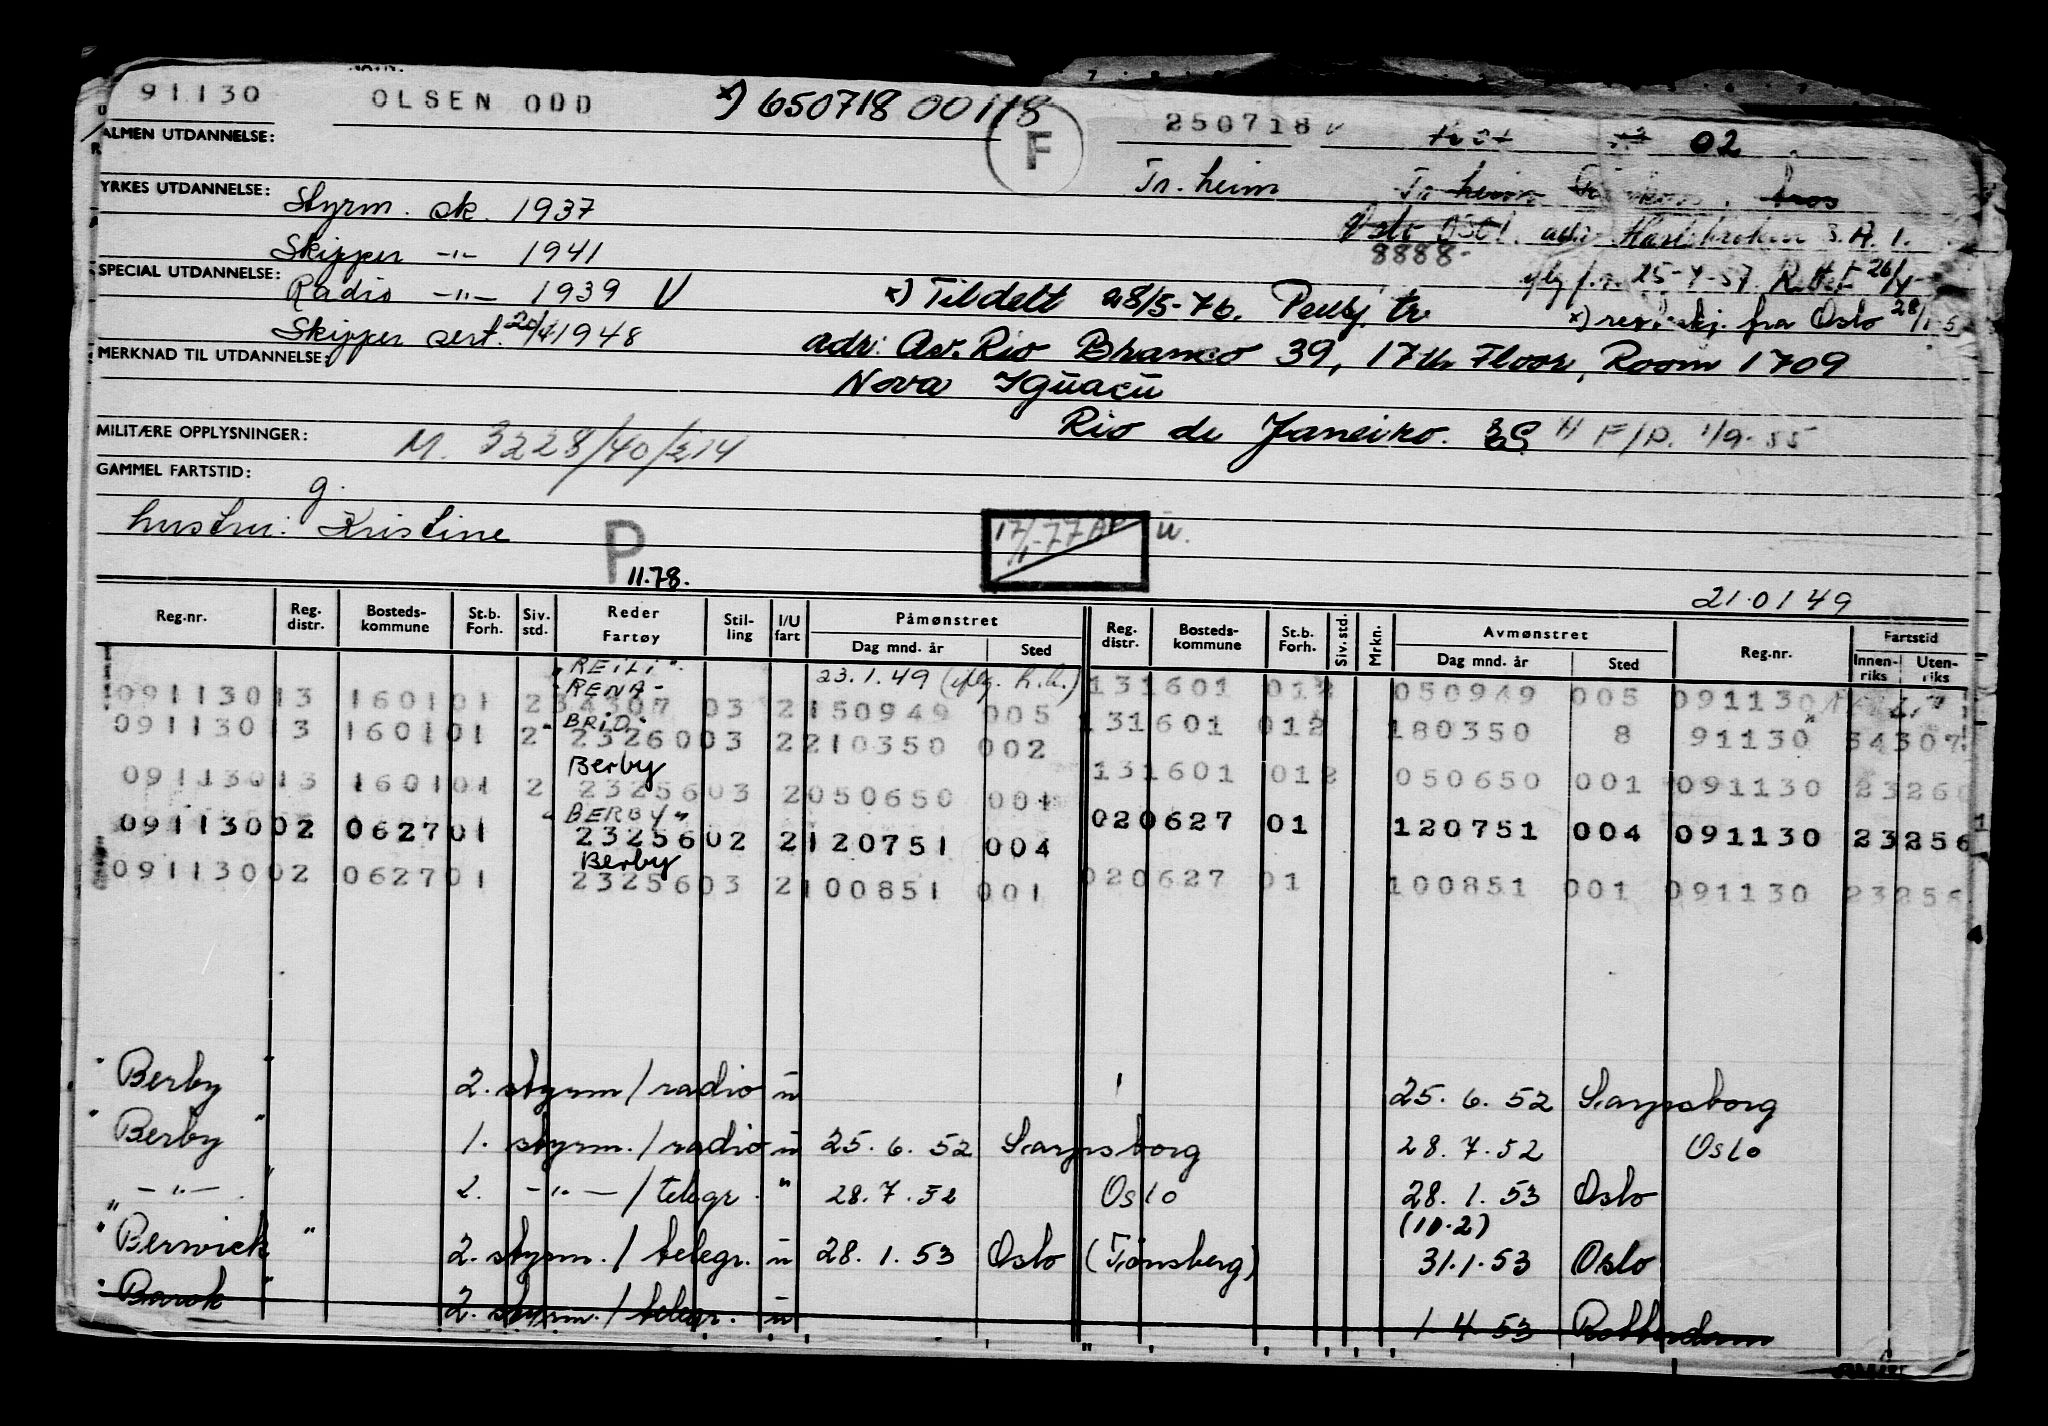 NAVN:
91130 OLSEN ODD x) 650718 00118 F 250718 02
ALMEN UTDANNELSE: Tr. heim Tr. heim
YRKES UTDANNELSE: Styrm. sk. 1937
8888-
Skipper -"- 1941
SPECIAL UTDANNELSE: Radio -"- 1939 V
x) Tildelt 28/5-76.
25-4-57.
x) fra Oslo
Skipper sert. 1948
adr: Av. Rio Branco 39, 17th Floor, Room 1709
MERKNAD TIL UTDANNELSE:
Nova Iguacu
Rio de Janeiro. F/D. 1/9-55
MILITÆRE OPPLYSNINGER: M. 3228/40/214
GAMMEL FARTSTID: g.
hustru: Kristine P 11.78. 17/1-77 ü.
21.01 49
Reg.nr. Reg. distr. Bosteds-kommune St.b. Forh. Siv. std. Reder Fartøy Stil-ling I/U fart Påmønstret Dag mnd. år Sted Reg. distr. Bosteds-kommune St.b. Forh. Siv. std. Mrkn. Avmønstret Dag mnd. år Sted Reg.nr. Fartstid Innen-riks Uten-riks
"REILI"
RENA- 23.1.49
09113013 160101 2 34307 03 2 150949 005 131601 012 050949 005 091130
BRIDI
09113013 160101 2 23260 03 2 210350 002 131601 012 180350 8 91130 34307
Berby
09113013 160101 2 23256 03 2 050650 001 131601 012 050650 001 091130 23260
"BERBY"
09113002 062701 23256 02 2 120751 004 020627 01 120751 004 091130 23256
Berby
09113002 062701 23256 03 2 100851 001 020627 01 100851 001 091130 23256
"Berby" 2. styrm/radio u 25.6.52 Sarpsborg
"Berby" 1. styrm./radio u 25.6.52 Sarpsborg 28.7.52 Oslo
" -"- " 2. -"-/telegr. " 28.7.52 Oslo 28.1.53 Oslo
(10.2)
"Berwick" 2. styrm./telegr. u 28.1.53 Oslo (Tönsberg) 31.1.53 Oslo
"Barok" 2. styrm./telegr. u 1.4.53 Rotterdam